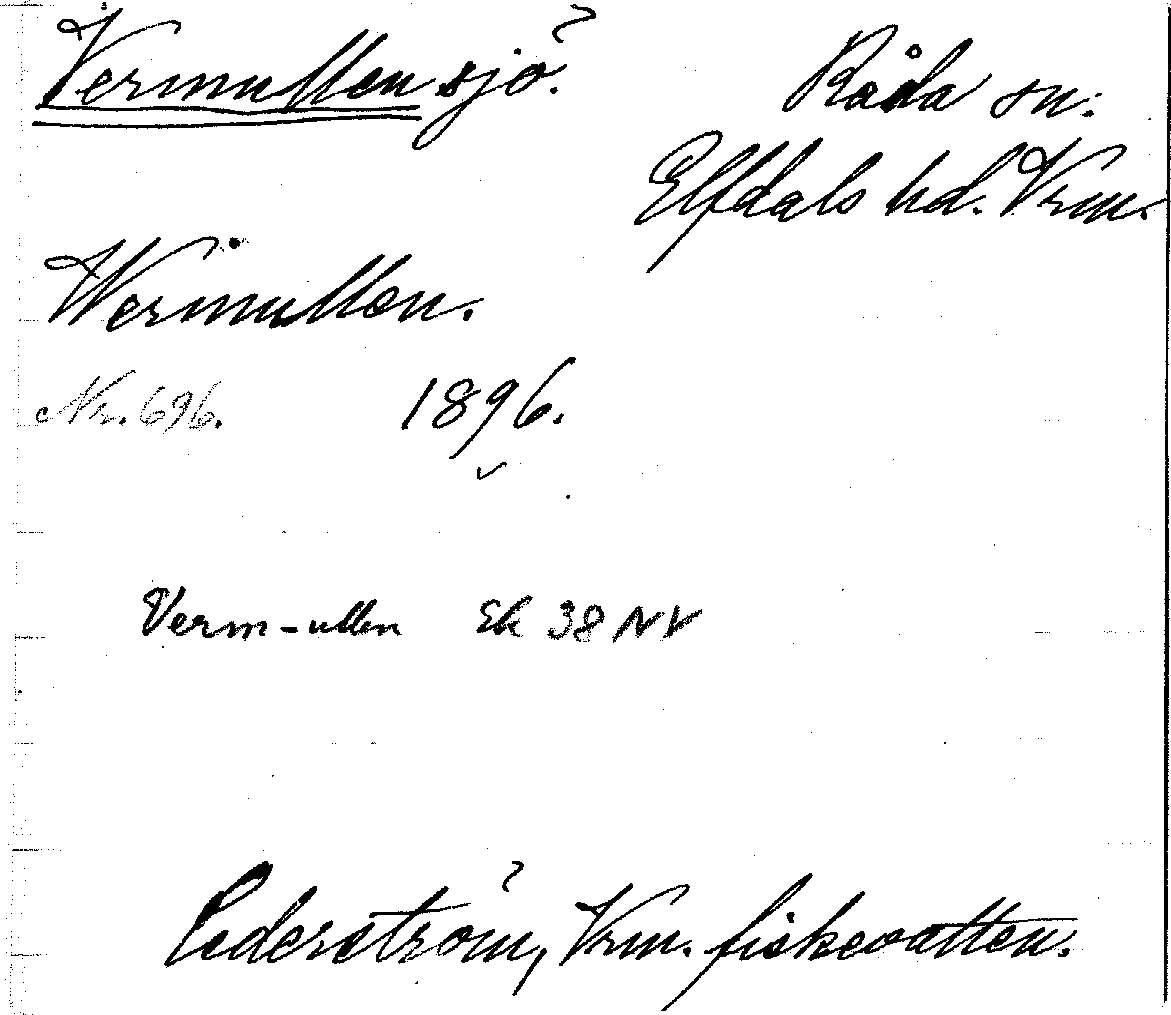 Vermullen sjö.
Råda sn.
Elfdals hd. Vrm.
Wermullen.
Nr. 696. 1896.
Verm-ullen Ek 38 NV
Cederström, Vrm. fiskevatten.